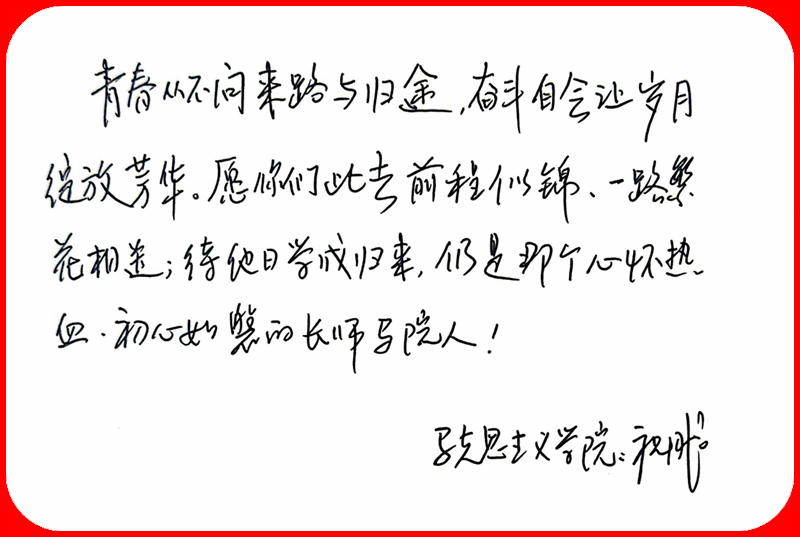 青春从不问来路与归途,奋斗自会让岁月
绽放芳华。愿你们此去前程似锦、一路繁
花相送;待他日学成归来,仍是那个心怀热
血、初心如磐的长师马院人!
马克思主义学院:祝